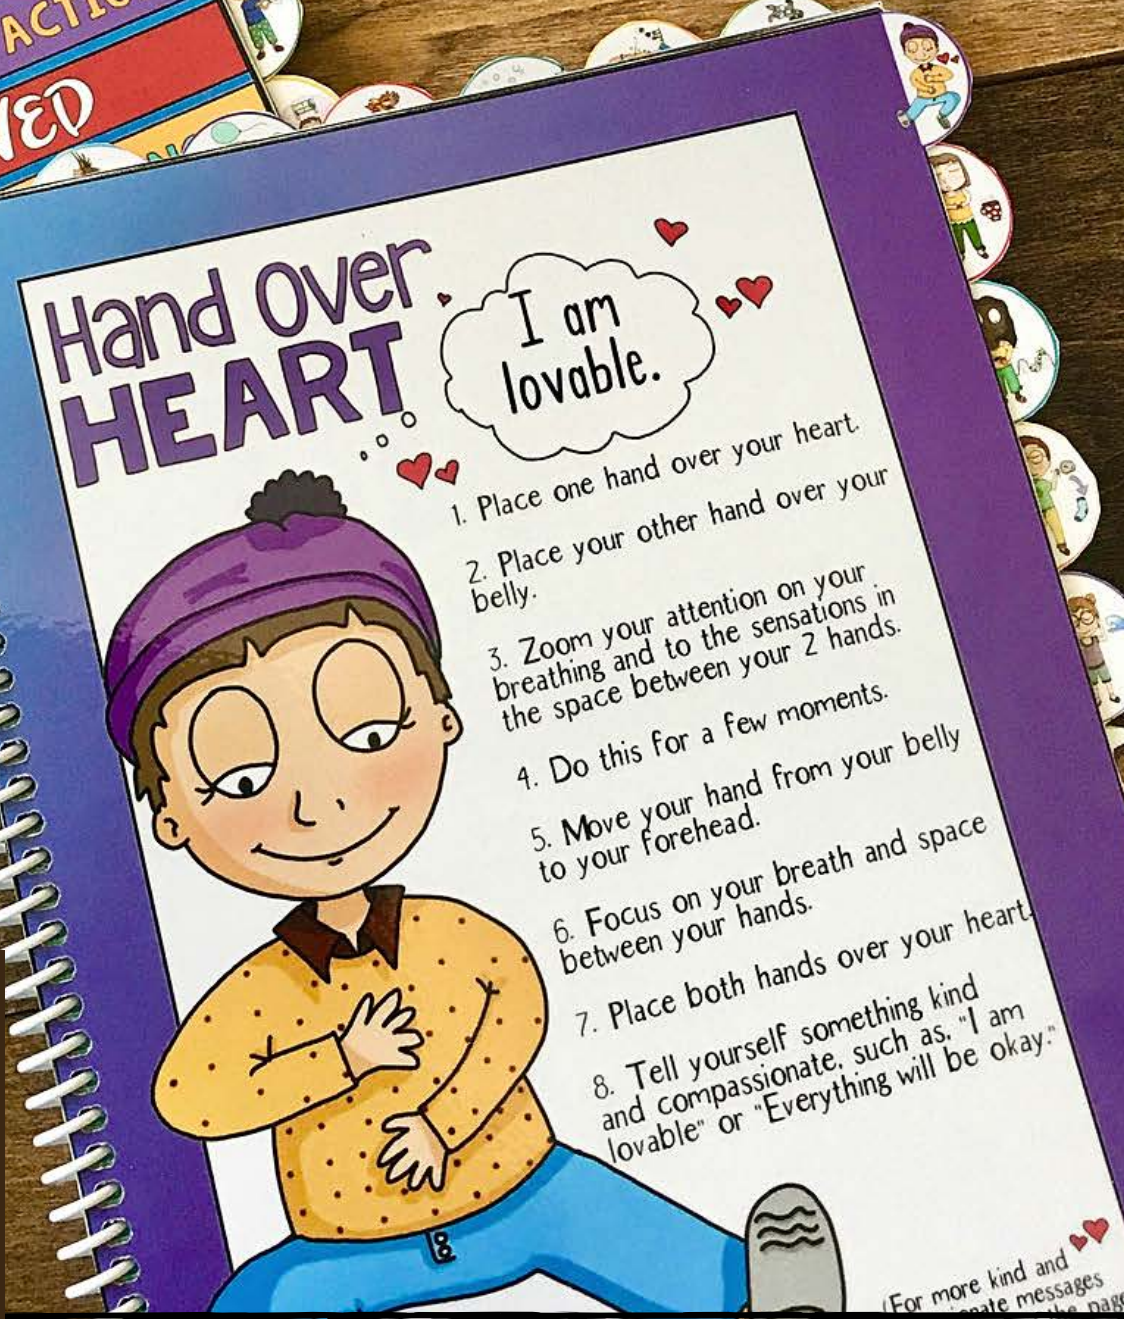 ACTIO
VED
Hand Over
HEART
I am
lovable.
1. Place one hand over your heart.
2. Place your other hand over your
belly.
3. Zoom your attention on your
breathing and to the sensations in
the space between your 2 hands.
4. Do this for a few moments.
5. Move your hand from your belly
to your forehead.
6. Focus on your breath and space
between your hands.
7. Place both hands over your heart.
8. Tell yourself something kind
and compassionate, such as, "I am
lovable" or "Everything will be okay."
(For more kind and
onate messages
the page